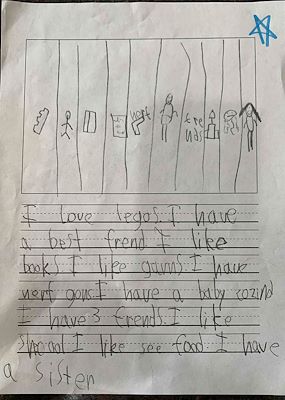 nerf
fre
nds
I love legos. I have
a best frend. I like
books I like
I have
nerf guns. I have a baby cozind
I have 3 frends. I like
shcool I like see food. I have
a sister